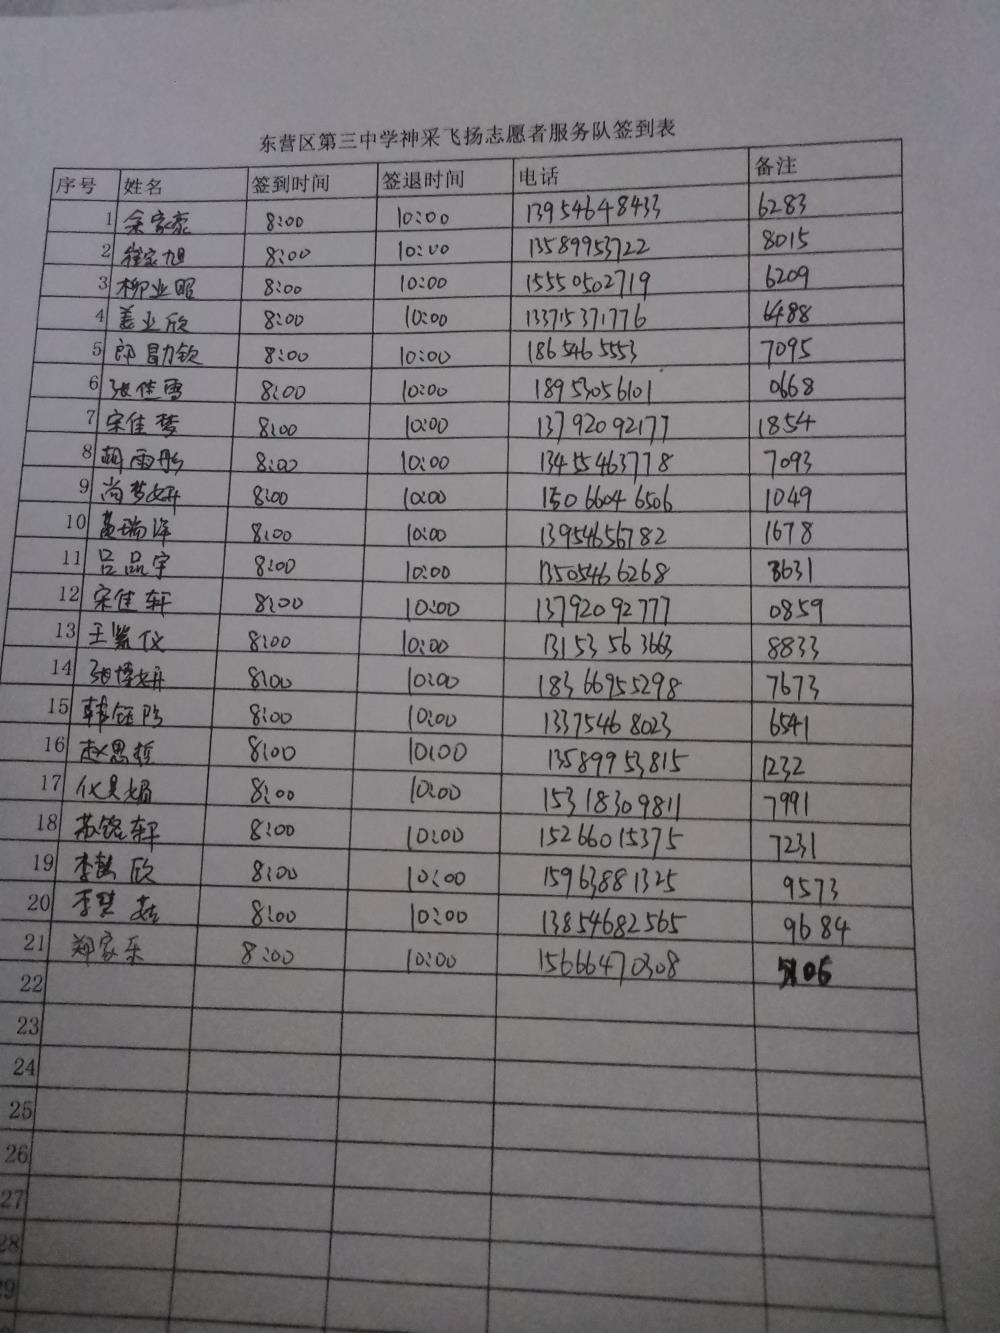 东营区第三中学神采飞扬志愿者服务队签到表
序号 姓名 签到时间 签退时间 电话 备注
1 余家豪 8:00 10:00 13954648433 6283
2 程家旭 8:00 10:00 13589953722 8015
3 柳业昭 8:00 10:00 15550502719 6209
4 姜业欣 8:00 10:00 133715371776 6488
5 郎勖钦 8:00 10:00 1865465553 7095
6 张佳雪 8:00 10:00 18953056101 0668
7 宋佳梦 8:00 10:00 13792092177 1854
8 胡雨彤 8:00 10:00 13455463778 7093
9 尚梦妍 8:00 10:00 15066046506 1049
10 瑞泽 8:00 10:00 13954656782 1678
11 吕品宇 8:00 10:00 13505466268 3631
12 宋佳轩 8:00 10:00 13792092777 0859
13 王紫仪 8:00 10:00 13153563663 8833
14 张博妍 8:00 10:00 18366955298 7673
15 韩钰 8:00 10:00 13375468023 6541
16 赵思哲 8:00 10:00 13589953815 1232
17 8:00 10:00 15318309811 7991
18 苏铭轩 8:00 10:00 15266015375 7231
19 李 欣 8:00 10:00 15963881325 9573
20 李 8:00 10:00 13854682565 9684
21 郑家乐 8:00 10:00 15666470308 5106
22
23
24
25
26
27
28
29